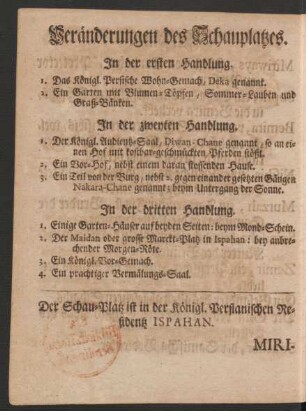 Veränderungen des Schauplatzes.
In der ersten Handlung.
1. Das Königl. Persische Wohn-Gemach, Deka genannt.
2. Ein Garten mit Blumen-Töpfen, Sommer-Lauben und
Graß-Bäncken.
In der zweyten Handlung.
1. Der Königl. Audientz-Saal, Diwan-Chane genannt, so an ei-
nen Hof mit kostbar-geschmückten Pferden stößt.
2. Ein Vor-Hof, nebst einem daran stossenden Hause.
3. Ein Teil von der Burg, nebst 2. gegen einander gesetzten Gängen
Nakara-Chane genannt; beym Untergang der Sonne.
In der dritten Handlung.
1. Einige Garten-Häuser auf beyden Seiten: beym Mond-Schein.
2. Der Maidan oder grosse Marckt-Platz in Ispahan: bey anbre-
chender Morgen-Röte.
3. Ein Königl. Vor-Gemach.
4. Ein prächtiger Vermälungs-Saal.
Der Schau-Platz ist in der Königl. Persianischen Re-
sidentz ISPAHAN.
MIRI-